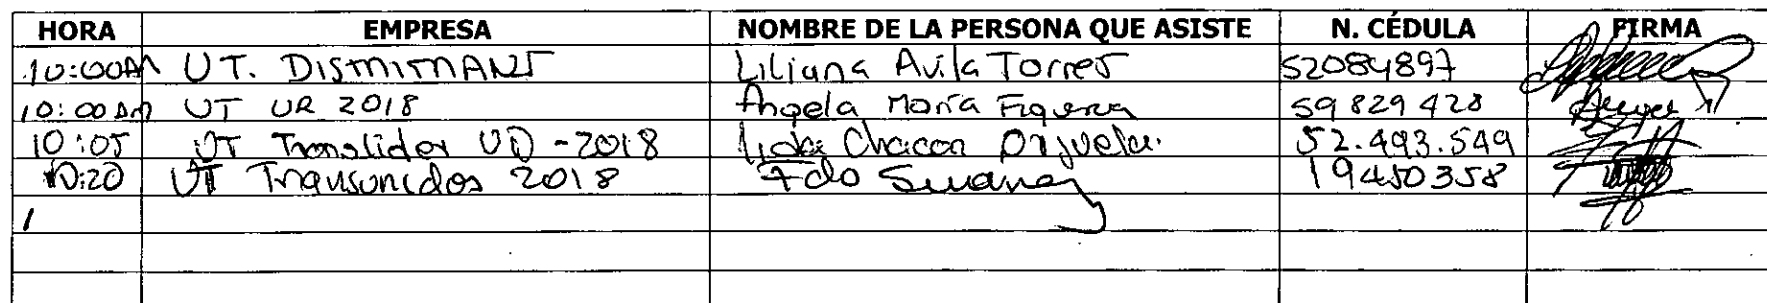 HORA EMPRESA NOMBRE DE LA PERSONA QUE ASISTE N. CÉDULA FIRMA
10:00AM UT. DISMITMANT Liliana Avila Torres 52084897
10:00 AM UT UR 2018 Angela María Figueroa 59829428
10:05 UT Translider UD - 2018 Chacon Orjuela. 52.493.549
10:20 UT Transunidos 2018 Fdo Suarez 19450358